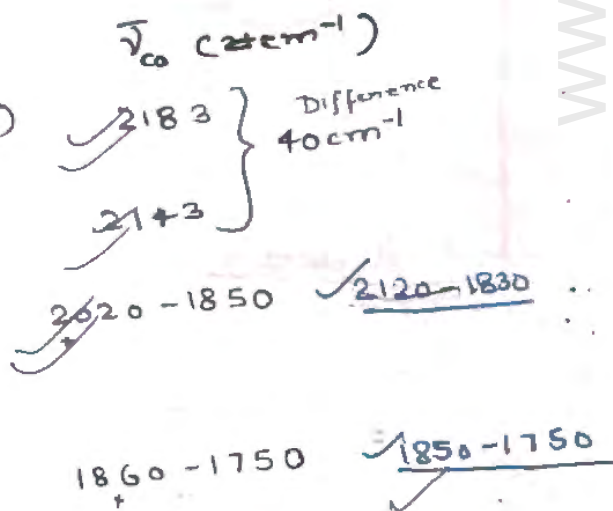 ν̄co (cm⁻¹)
) 2183
Difference
40 cm⁻¹
2143
2020 - 1850 2120-1830
1860 - 1750 1850-1750
WWW